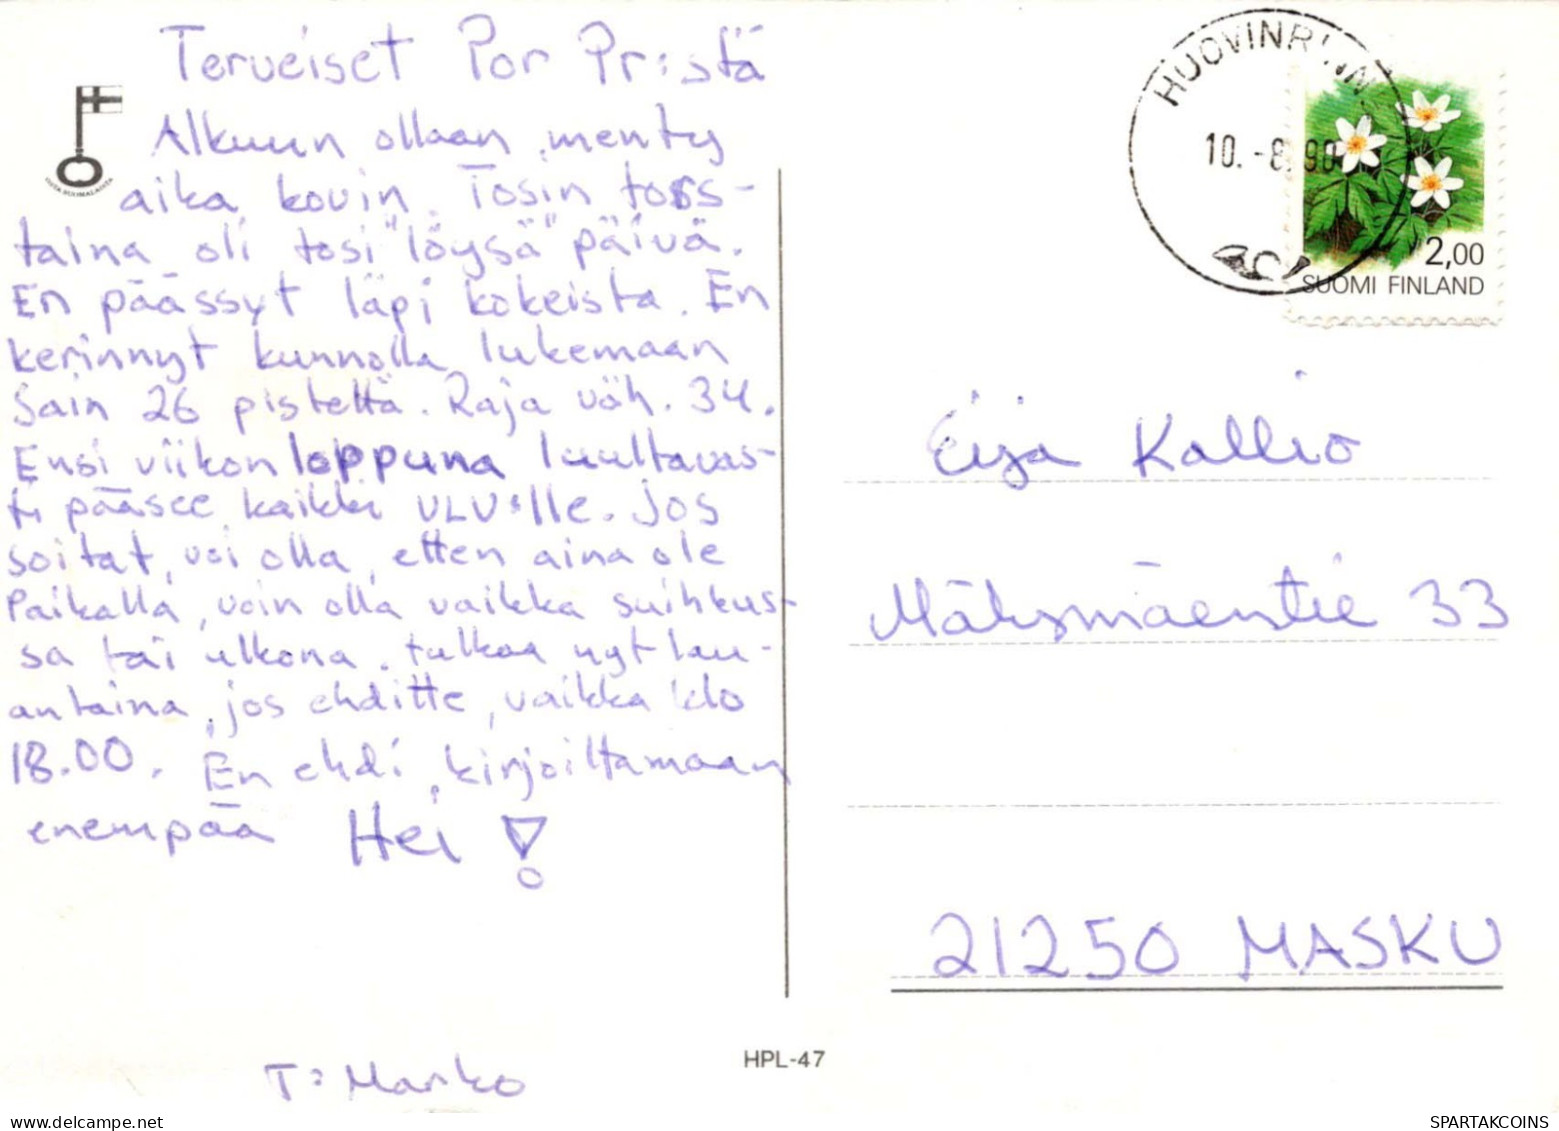 Terveiset Por Pr:stä
Alkuun ollaan menty
aika kovin. Tosin tors-
taina oli tosi "löysä" päivä.
En päässyt läpi kokeista. En
kerinnyt kunnolla lukemaan
Sain 26 pistettä. Raja väh. 34.
Ensi viikon loppuna luultavas-
ti pääsee kaikki VLV:lle. Jos
soitat, voi olla, etten aina ole
Paikalla, voin olla vaikka suihkus-
sa tai ulkona. tulkaa nyt lau-
antaina, jos ehditte, vaikka klo
18.00. En ehdi kirjoittamaan
enempää Hei!
T: Marko
HPL-47
10.-8.90
2,00
SUOMI FINLAND
Eija Kallio
33
21250 MASKU
SPARTAKCOINS